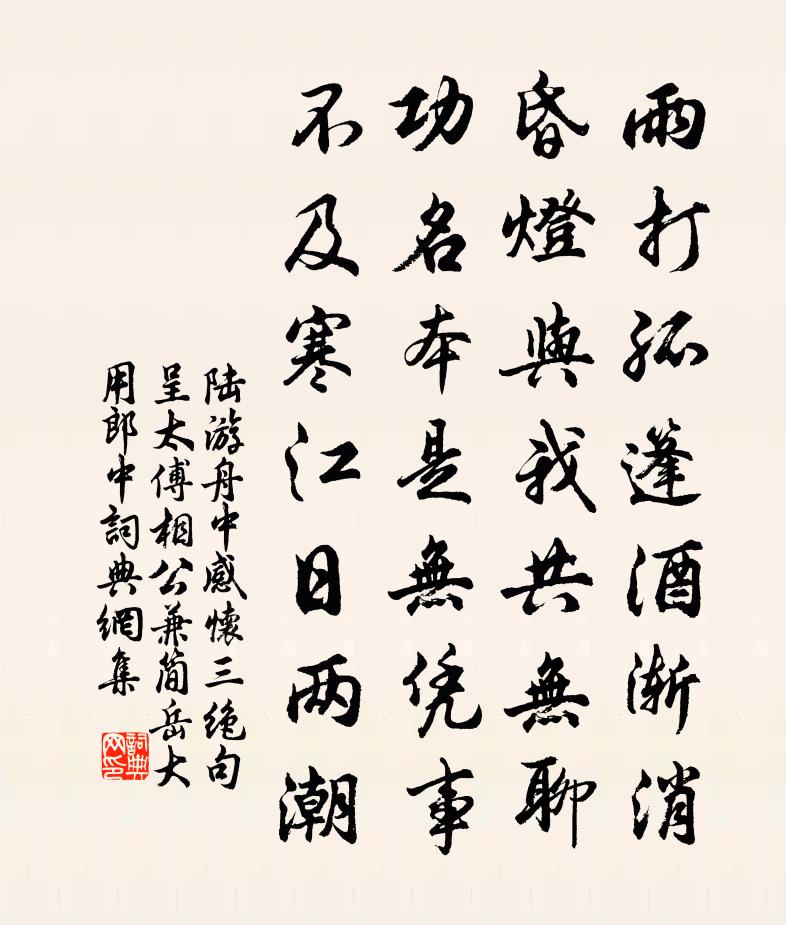 雨打孤蓬酒渐消
昏燈與我共無聊
功名本是無凭事
不及寒江日两潮
陆游舟中感懷三绝句
呈太傅相公兼简岳大
用郎中詞典網集
詞典网印